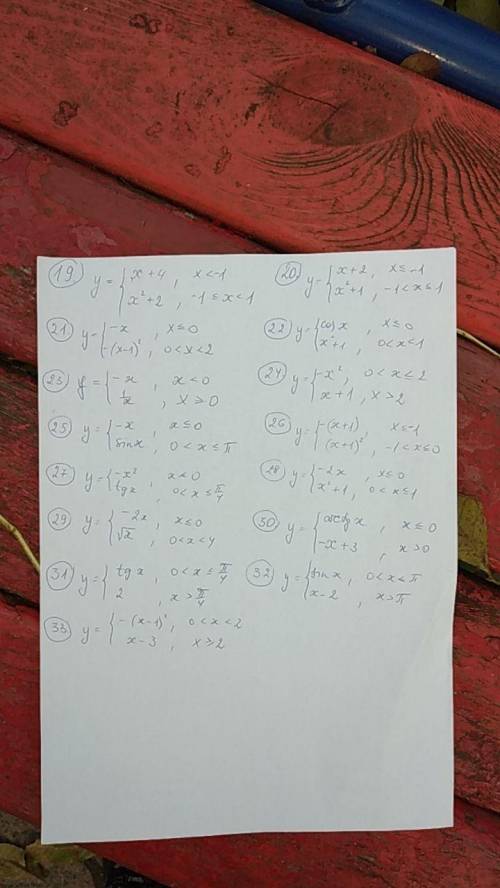 19 y = { x + 4, x < -1
x² + 2, -1 ≤ x < 1
20 y = { x + 2, x ≤ -1
x² + 1, -1 < x ≤ 1
21 y = { -x, x ≤ 0
-(x-1)², 0 < x < 2
22 y = { cos x, x ≤ 0
x² + 1, 0 < x < 1
23 y = { -x, x < 0
, x ≥ 0
24 y = { -x², 0 < x ≤ 2
x + 1, x > 2
25 y = { -x, x ≤ 0
sin x, 0 < x ≤ π
26 y = { -(x+1), x ≤ -1
(x+1)², -1 < x ≤ 0
27 y = { -x², x ≤ 0
tg x, 0 < x ≤ π/4
28 y = { -2x, x ≤ 0
x² + 1, 0 < x ≤ 1
29 y = { -2x, x ≤ 0
√x, 0 < x < 4
30 y = { arcctg x, x ≤ 0
-x + 3, x > 0
31 y = { tg x, 0 < x ≤ π/4
2, x > π/4
32 y = { sin x, 0 < x ≤ π
x - 2, x > π
33 y = { -(x-1)², 0 < x < 2
x - 3, x ≥ 2